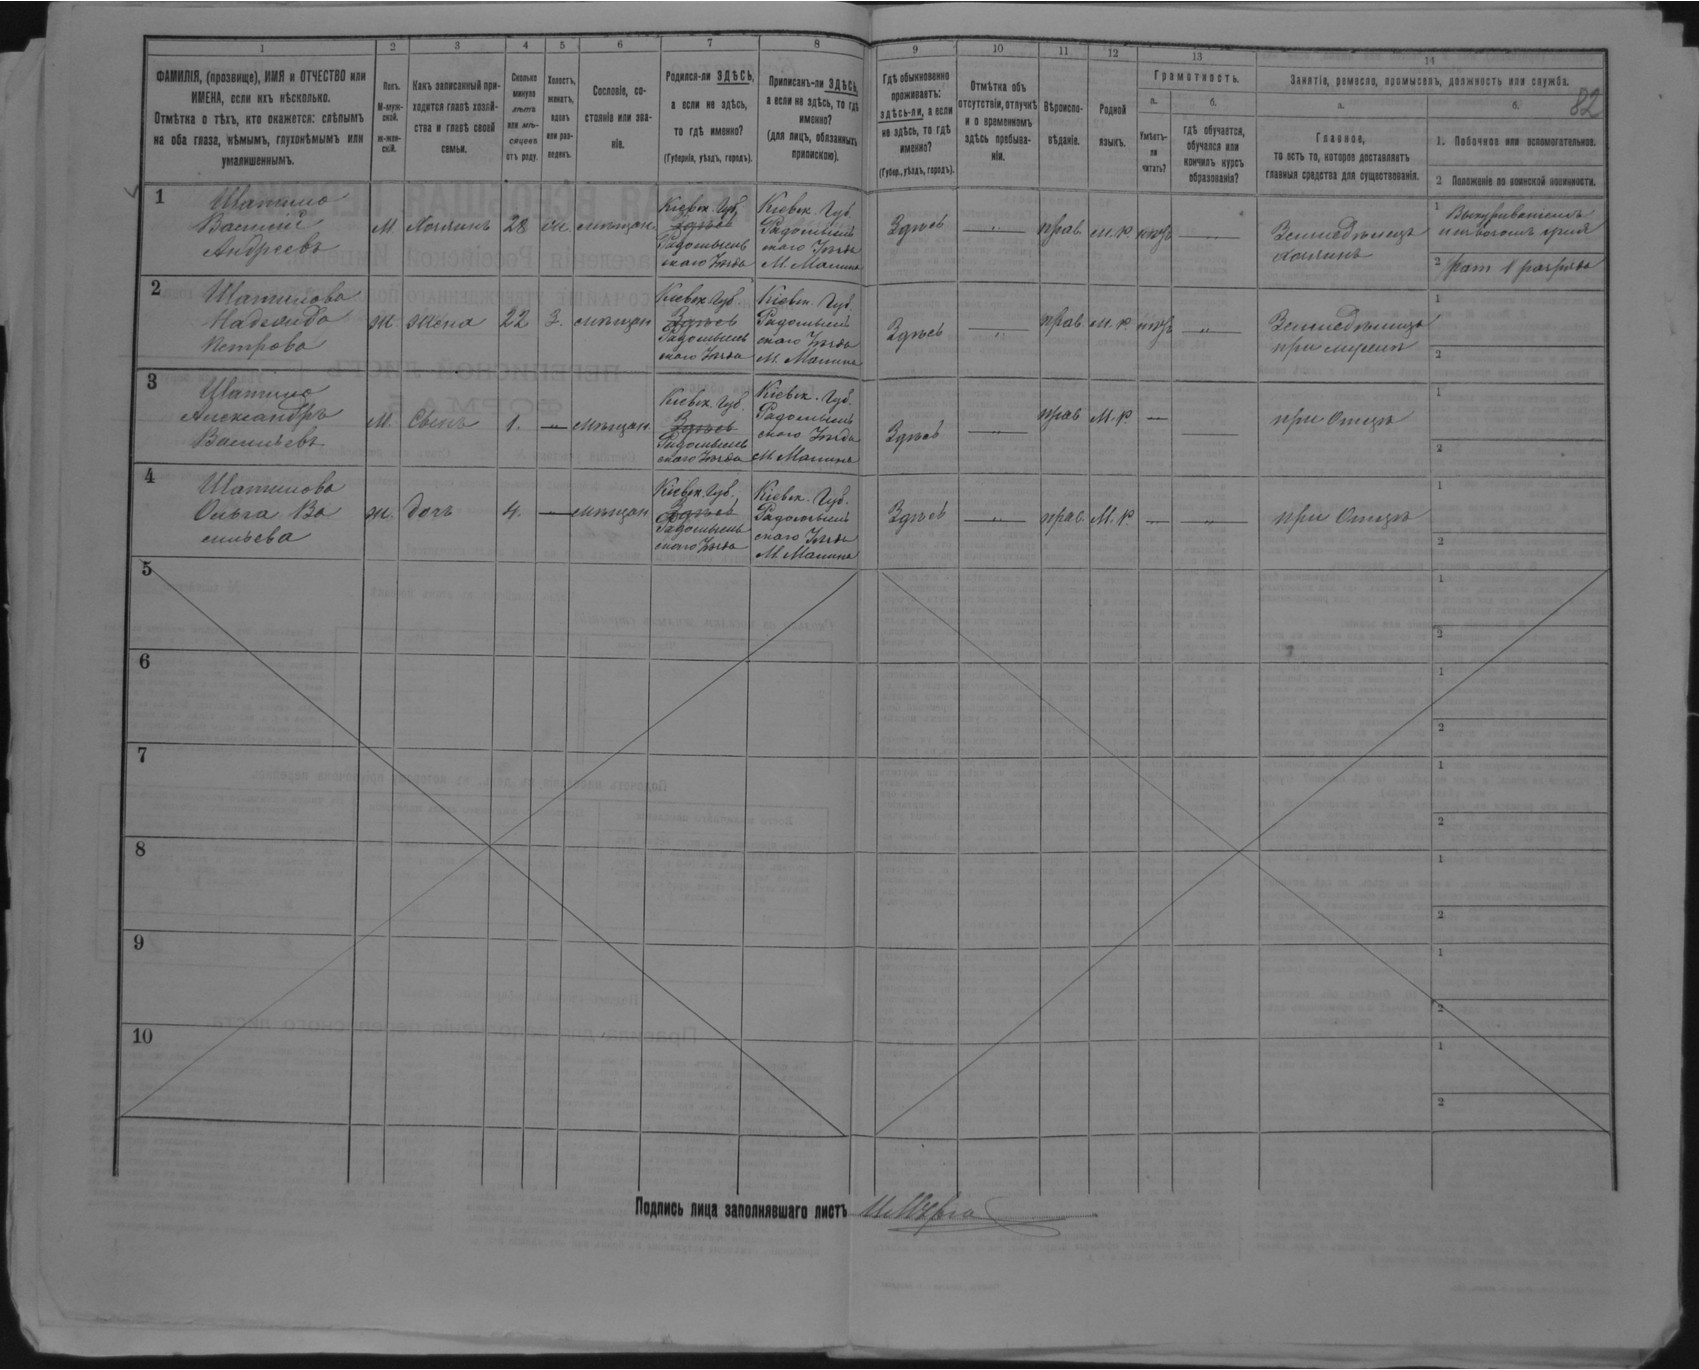 1 2 3 4 5 6 7 8 9 10 11 12 13 14
82
ФАМИЛІЯ, (прозвище), ИМЯ и ОТЧЕСТВО или
ИМЕНА, если ихъ нѣсколько.
Отмѣтка о тѣхъ, кто окажется: слѣпымъ
на оба глаза, нѣмымъ, глухонѣмымъ или
умалишеннымъ.
Полъ.
М-муж-
ской.
ж-жен-
скій.
Какъ записанный при-
ходится главѣ хозяй-
ства и главѣ своей
семьи.
Сколько
минуло
лѣтъ
или мѣ-
сяцевъ
отъ роду.
Холостъ,
женатъ,
вдовъ
или раз-
веденъ.
Сословіе, со-
стояніе или зва-
ніе.
Родился-ли ЗДѢСЬ,
а если не здѣсь,
то гдѣ именно?
(Губернія, уѣздъ, городъ).
Приписанъ-ли ЗДѢСЬ,
а если не здѣсь, то гдѣ
именно?
(для лицъ, обязанныхъ
припискою).
Гдѣ обыкновенно
проживаетъ:
здѣсь-ли, а если
не здѣсь, то гдѣ
именно?
(Губер., уѣздъ, городъ).
Отмѣтка объ
отсутствіи, отлучкѣ
и о временномъ
здѣсь пребыва-
ніи.
Вѣроиспо-
вѣданіе.
Родной
языкъ.
Грамотность.
а.
Умѣетъ-
ли
читать?
б.
гдѣ обучается,
обучался или
кончилъ курсъ
образованія?
Занятія, ремесло, промыселъ, должность или служба.
а.
Главное,
то есть то, которое доставляетъ
главныя средства для существованія.
б.
1. Побочное или вспомогательное.
2 Положеніе по воинской повинности.
1
Шатило
Василій
Андреевъ
М. Хозяинъ 28 ж. мѣщан.
Кіевск. Губ.
Здѣсь
Радомысль
скаго Уѣзда
Кіевск. Губ.
Радомысль
скаго Уѣзда
М. Малина
Здѣсь „ прав. М. р. —
Земледѣлецъ
Хозяинъ
1
2 рат 1 разряда
2
Шатилова
Надежда
Петрова
ж. жена 22 З. мѣщан
Кіевск. Губ.
Здѣсь
Радомысль
скаго Уѣзда
Кіевск. Губ.
Радомысль
скаго Уѣзда
М. Малина
Здѣсь „ прав. М. р. „
Земледѣлица
при мужѣ
1
2
3
Шатило
Александръ
Васильевъ
М. Сынъ 1. — мѣщан.
Кіевск. Губ.
Здѣсь
Радомысль
скаго Уѣзда
Кіевск. Губ.
Радомысль
скаго Уѣзда
М. Малина
Здѣсь „ прав М. р — —
при Отцѣ
1
2
4
Шатилова
Ольга Ва
сильева
ж. дочь 4. — мѣщан
Кіевск. Губ.
Здѣсь
Радомысль
скаго Уѣзда
Кіевск. Губ.
Радомысль
скаго Уѣзда
М. Малина
Здѣсь „ прав. М. р — „
при Отцѣ
1
2
5
1
2
6
1
2
7
1
2
8
1
2
9
1
2
10
1
2
Подпись лица заполнявшаго листъ